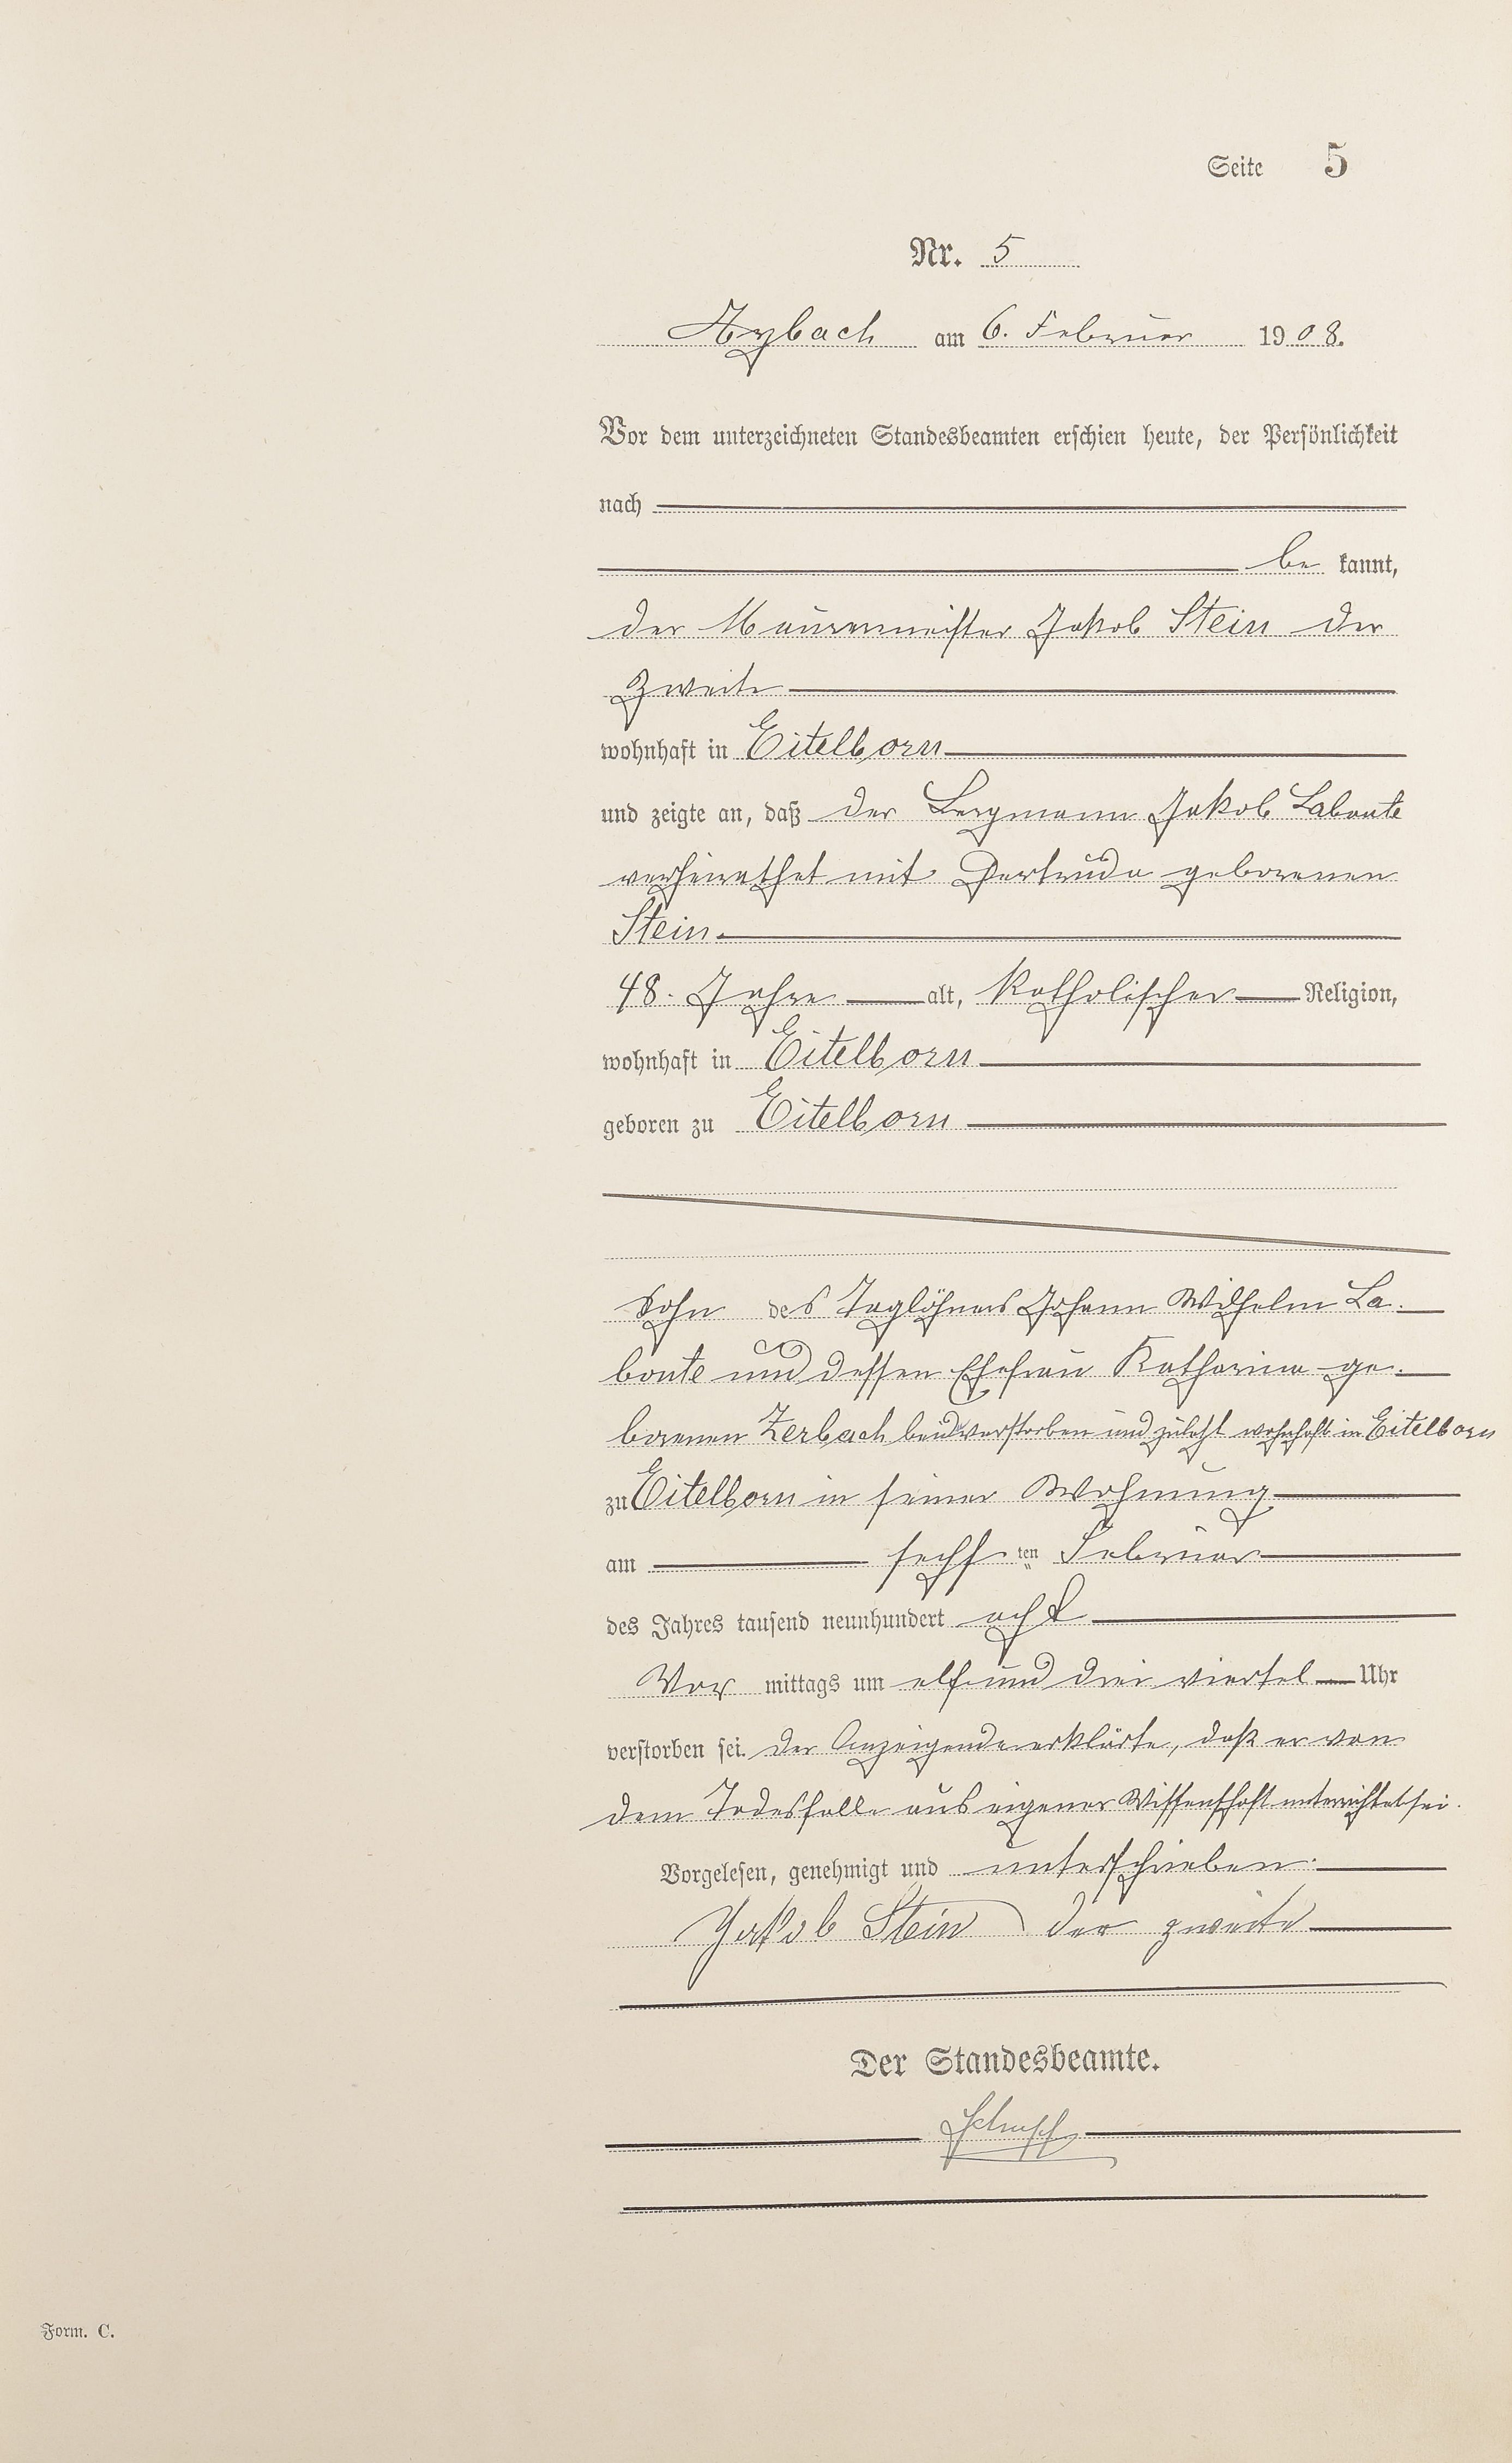 Seite 5
Nr. 5
Arzbach am 6. Februar 1908.
Vor dem unterzeichneten Standesbeamten erschien heute, der Persönlichkeit
nach
be kannt,
der Maurermeister Jakob Stein der
Zweite
wohnhaft in Eitelborn
und zeigte an, daß der Bergmann Jakob Labonte
verheirathet mit Gertruda geborenen
Stein.
48. Jahre alt, katholischer Religion,
wohnhaft in Eitelborn
geboren zu Eitelborn
Sohn des Taglöhners Johann Wilhelm La-
bonte und dessen Ehefrau Katharina ge-
borenen Zerbach beide verstorben und zuletzt wohnhaft in Eitelborn
zu Eitelborn in seiner Wohnung
am sechsten Februar
des Jahres tausend neunhundert acht
Vor mittags um elf und drei viertel Uhr
verstorben sei. Der Anzeigende erklärte, daß er von
dem Todesfalle aus eigener Wissenschaft unterrichtet sei.
Vorgelesen, genehmigt und unterschrieben.
Jakob Stein der zweite
Der Standesbeamte.
Form. C.